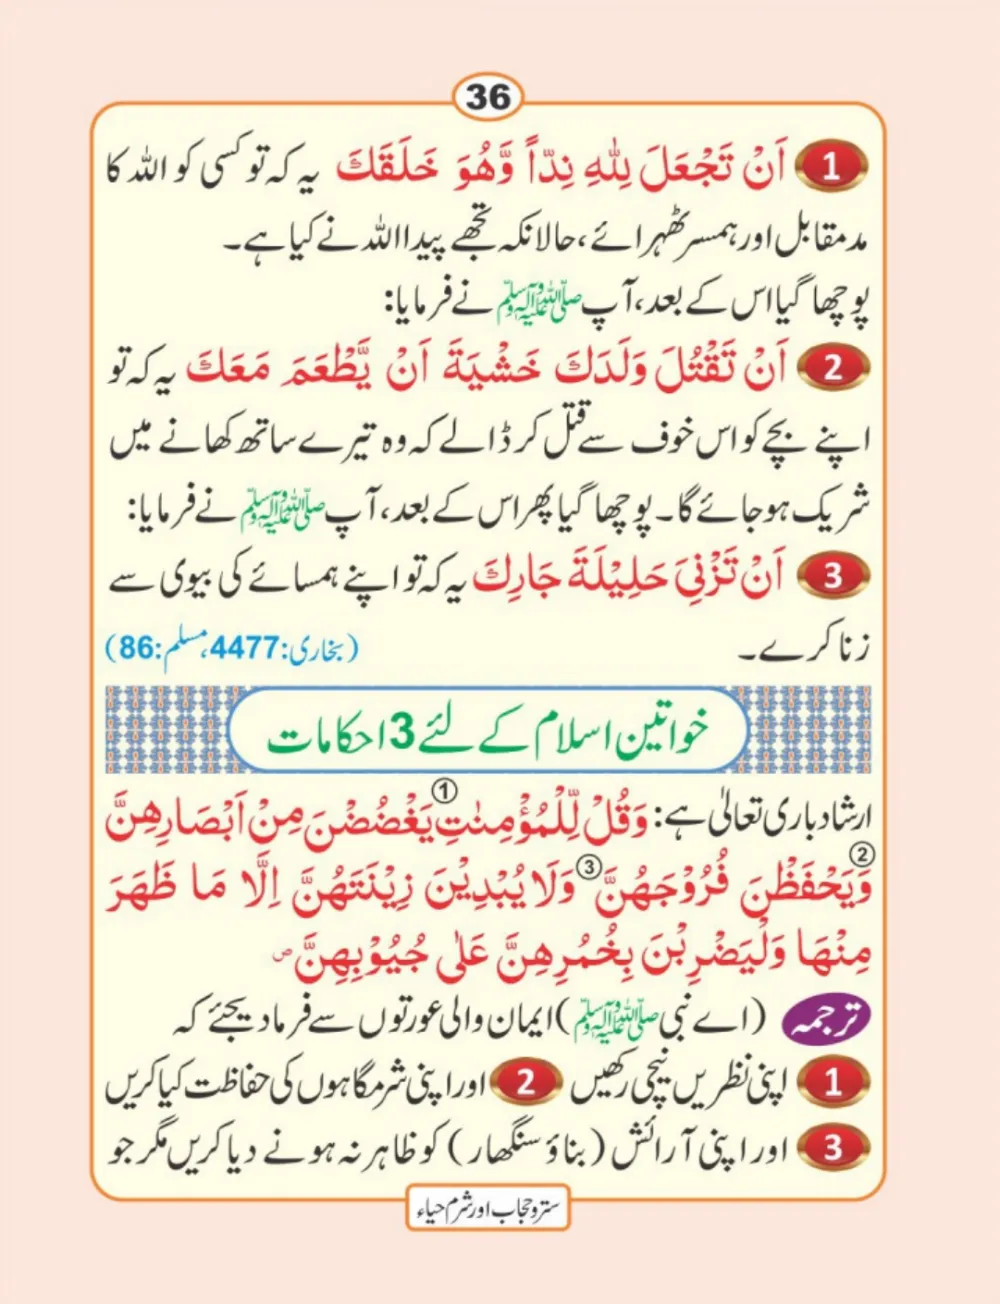 36
1 اَنْ تَجْعَلَ لِلّٰهِ نِدّاً وَّهُوَ خَلَقَكَ یہ کہ تو کسی کو اللہ کا
مدمقابل اور ہمسر ٹھہرائے، حالانکہ تجھے پیدا اللہ نے کیا ہے۔
پوچھا گیا اس کے بعد، آپ صلی اللہ علیہ وآلہ وسلم نے فرمایا:
2 اَنْ تَقْتُلَ وَلَدَكَ خَشْيَةَ اَنْ يَّطْعَمَ مَعَكَ یہ کہ تو
اپنے بچے کو اس خوف سے قتل کر ڈالے کہ وہ تیرے ساتھ کھانے میں
شریک ہو جائے گا۔ پوچھا گیا پھر اس کے بعد، آپ صلی اللہ علیہ وآلہ وسلم نے فرمایا:
3 اَنْ تَزْنِیَ حَلِيْلَةَ جَارِكَ یہ کہ تو اپنے ہمسائے کی بیوی سے
زنا کرے۔ (بخاری:4477، مسلم:86)
خواتین اسلام کے لئے 3 احکامات
ارشاد باری تعالیٰ ہے: وَقُلْ لِّلْمُؤْمِنٰتِ ① يَغْضُضْنَ مِنْ اَبْصَارِهِنَّ
② وَيَحْفَظْنَ فُرُوْجَهُنَّ ③ وَلَا يُبْدِيْنَ زِيْنَتَهُنَّ اِلَّا مَا ظَهَرَ
مِنْهَا وَلْيَضْرِبْنَ بِخُمُرِهِنَّ عَلٰى جُيُوْبِهِنَّ ص
ترجمہ (اے نبی صلی اللہ علیہ وآلہ وسلم) ایمان والی عورتوں سے فرما دیجئے کہ
1 اپنی نظریں نیچی رکھیں 2 اور اپنی شرمگاہوں کی حفاظت کیا کریں
3 اور اپنی آرائش (بناؤ سنگھار) کو ظاہر نہ ہونے دیا کریں مگر جو
ستر و حجاب اور شرم حیاء